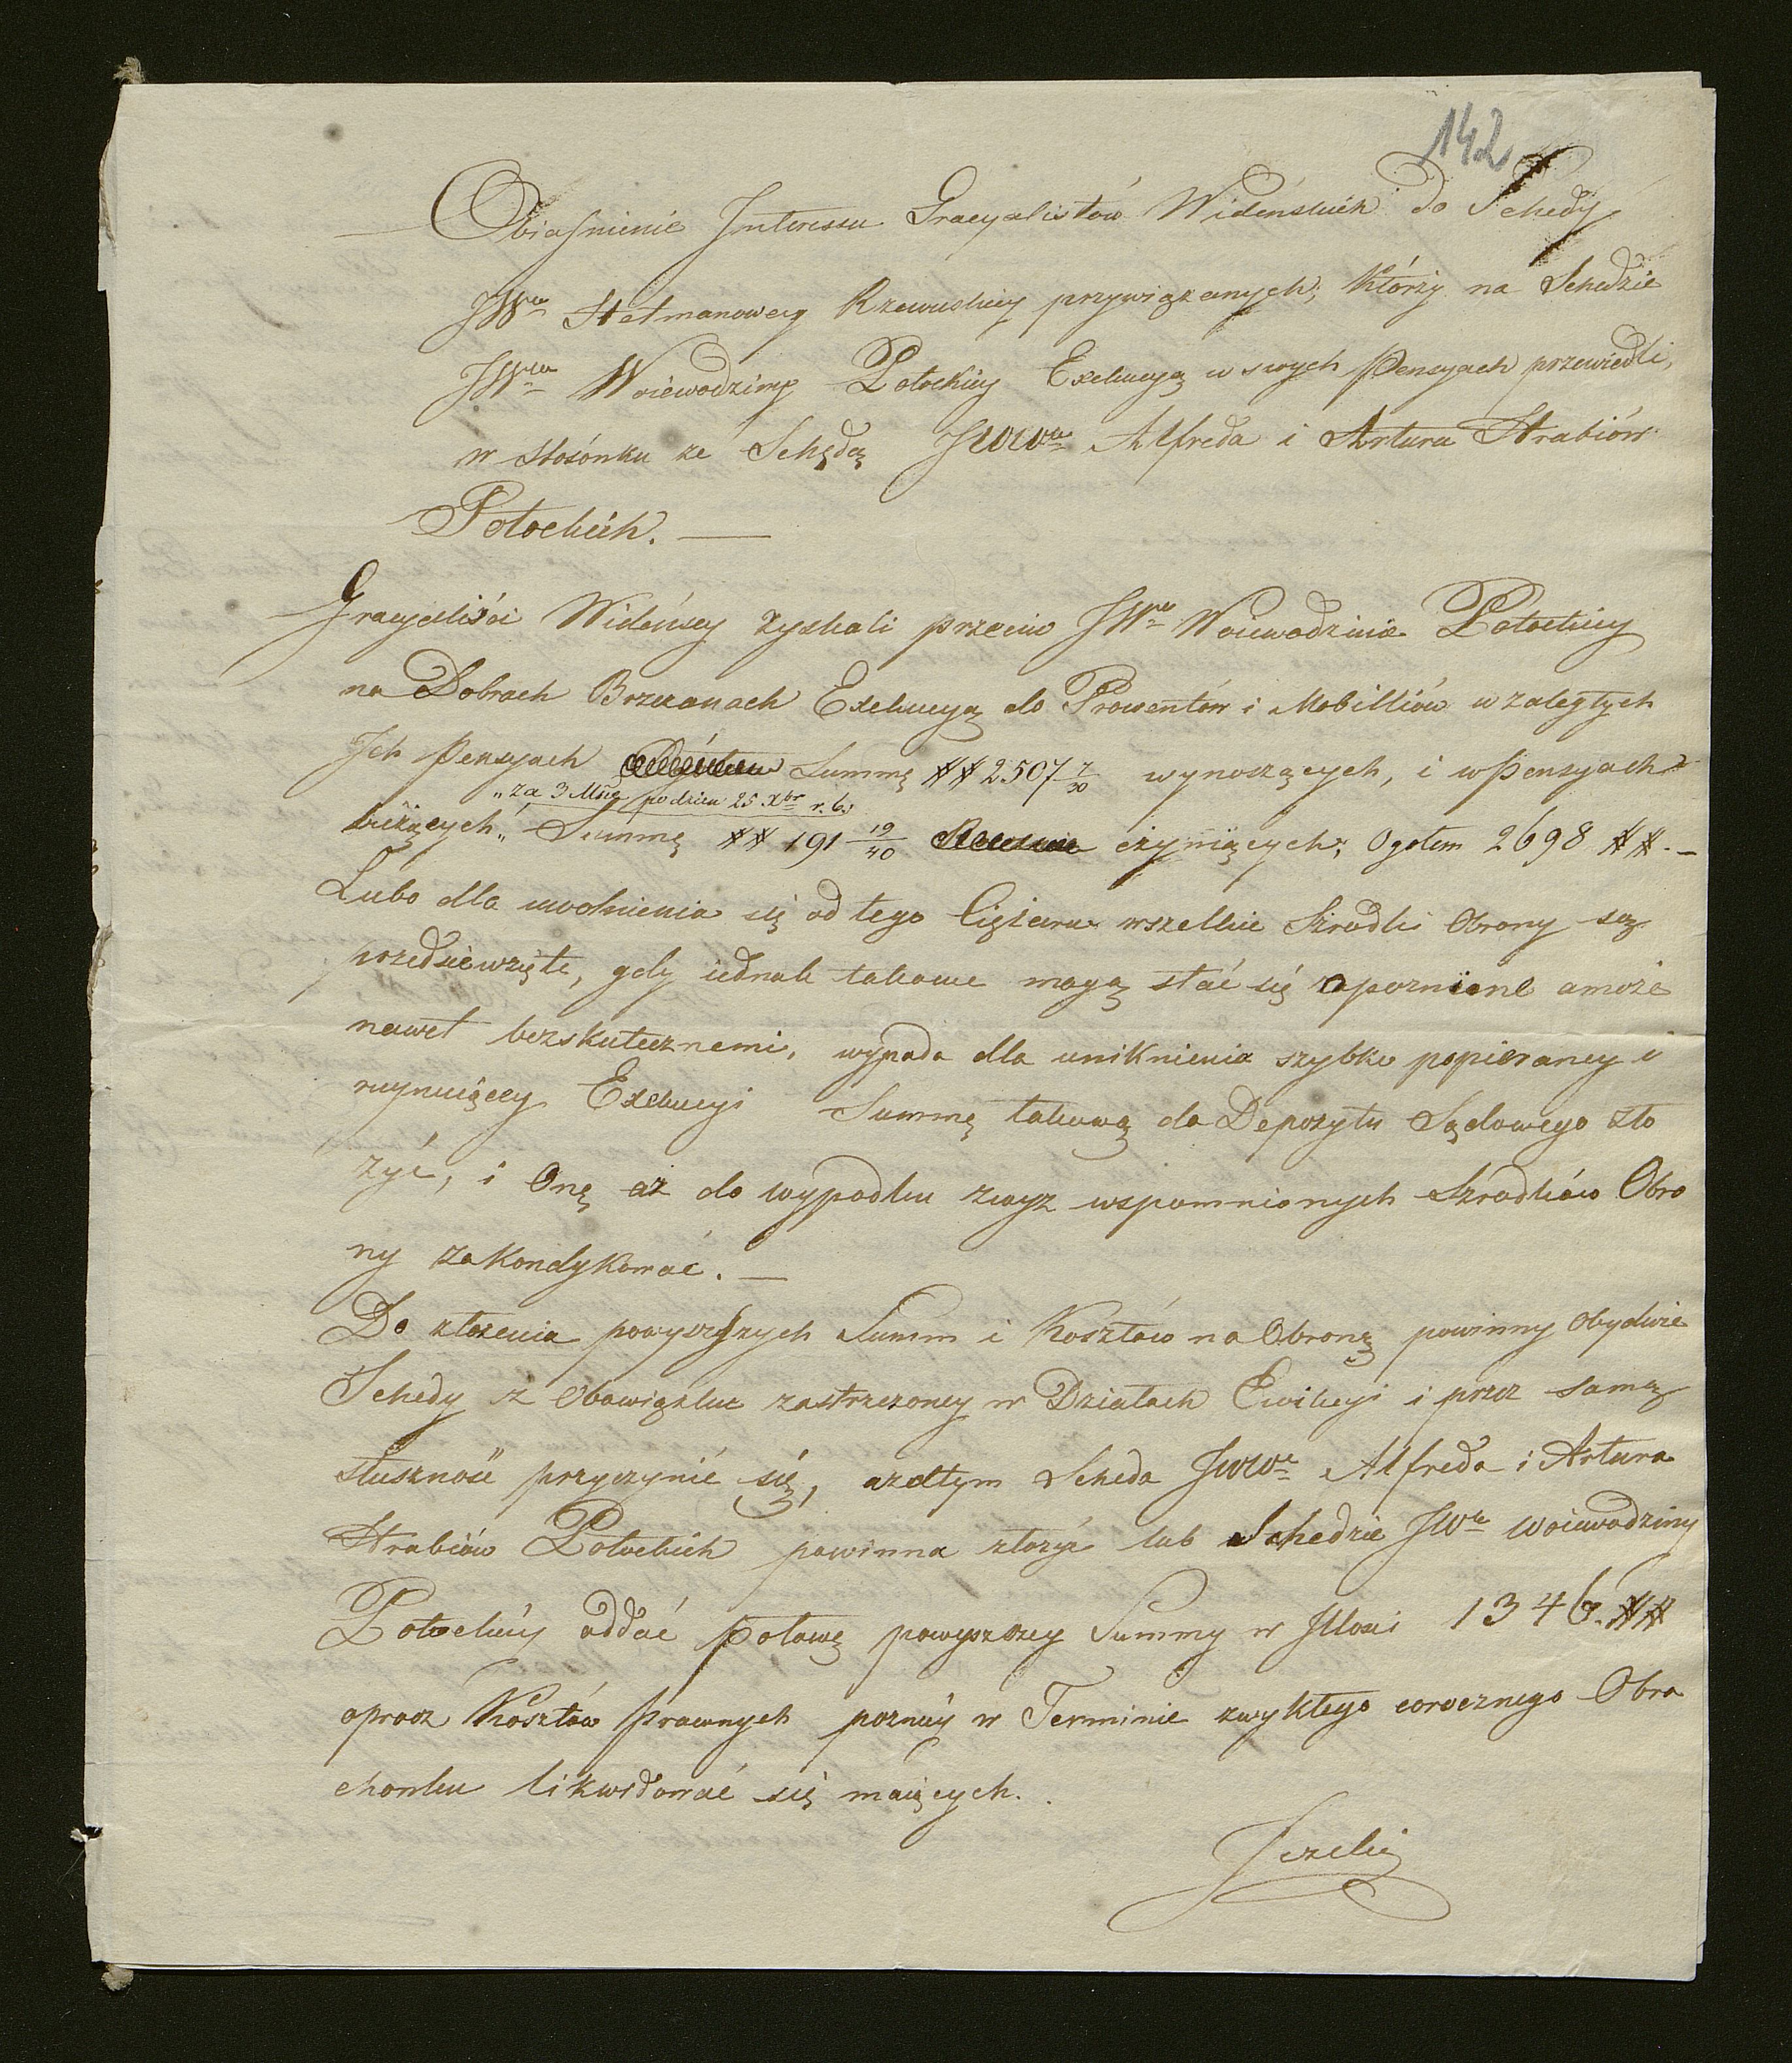 142
Obiaśnienie Interessu Gracyalistów Widenskich do Schedy
JWey Hetmanowey Rzewuskiey przywiązanych, którzy na Schedzie
JWey Woiewodziny Potockiey Exekucyą w swych Pensyach przewiedli,
w stosónku ze Schedą JWW Alfreda i Artura Hrabiów
Potockich. —
Gracyaliści Widenscy zyskali przeciw JWey Woiewodzinie Potockiey
na Dobrach Brzezanach Exekucyą do Prowentów i Mobiliów w zaległych
Ich Pensyach Summę ## 2507 7/30 wynoszących, i w Pensyach
„za 3 Mce po dzień 25 Xbr r. b.
bieżących „ Summę ## 191 19/40 czyniących; Ogołem 2698 ##. —
Lubo dla uwolnienia się od tego Ciężaru wszelkie Szrodki Obrony są
przedsiewzięte, gdy iednak takowe mogą stać się opoznione a może
nawet bezskutecznemi, wypada dla uniknienia szybko popieraney i
ruynuiącey Exekucyi Summę takową do Depozytu Sądowego zło
żyć, i Onę aż do wypadku zwyz wspomnionych Szrodków Obro
ny zakondykować. —
Do złożenia powyższych Summ i Kosztów na Obronę powinny obydwie
Schedy z Obowiązku zastrzeżoney w Działach Ewikcyi i przez samą
słuszność przyczynić się, a zatym Scheda JWW Alfreda i Artura
Hrabiów Potockich powinna złożyć lub Schedzie JWey Woiewodziny
Potockiey oddać połowę powyższey Summy w Ilości 1346. ##
oprócz Kosztów prawnych pozniey w Terminie zwykłego corocznego Obra
chonku likwidować się maiących.